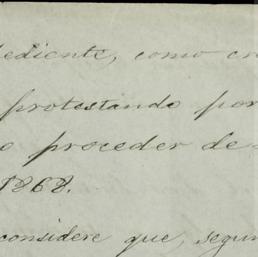 ediente, como cr
protestando por
o proceder de
1868.
considere que, segun